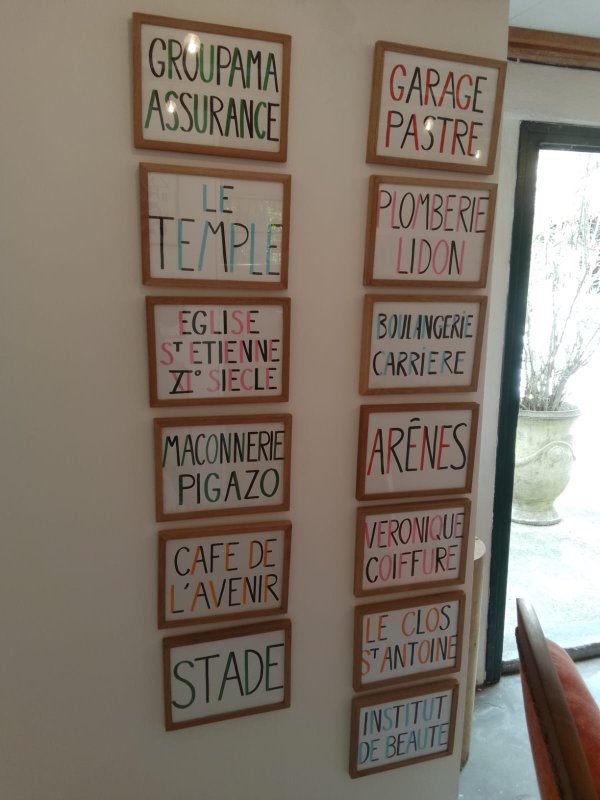 GROUPAMA
ASSURANCE
LE
TEMPLE
EGLISE
ST ETIENNE
XI° SIECLE
MACONNERIE
PIGAZO
CAFE DE
L'AVENIR
STADE
GARAGE
PASTRE
PLOMBERIE
LIDON
BOULANGERIE
CARRIERE
ARÊNES
VERONIQUE
COIFFURE
LE CLOS
ST ANTOINE
INSTITUT
DE BEAUTE